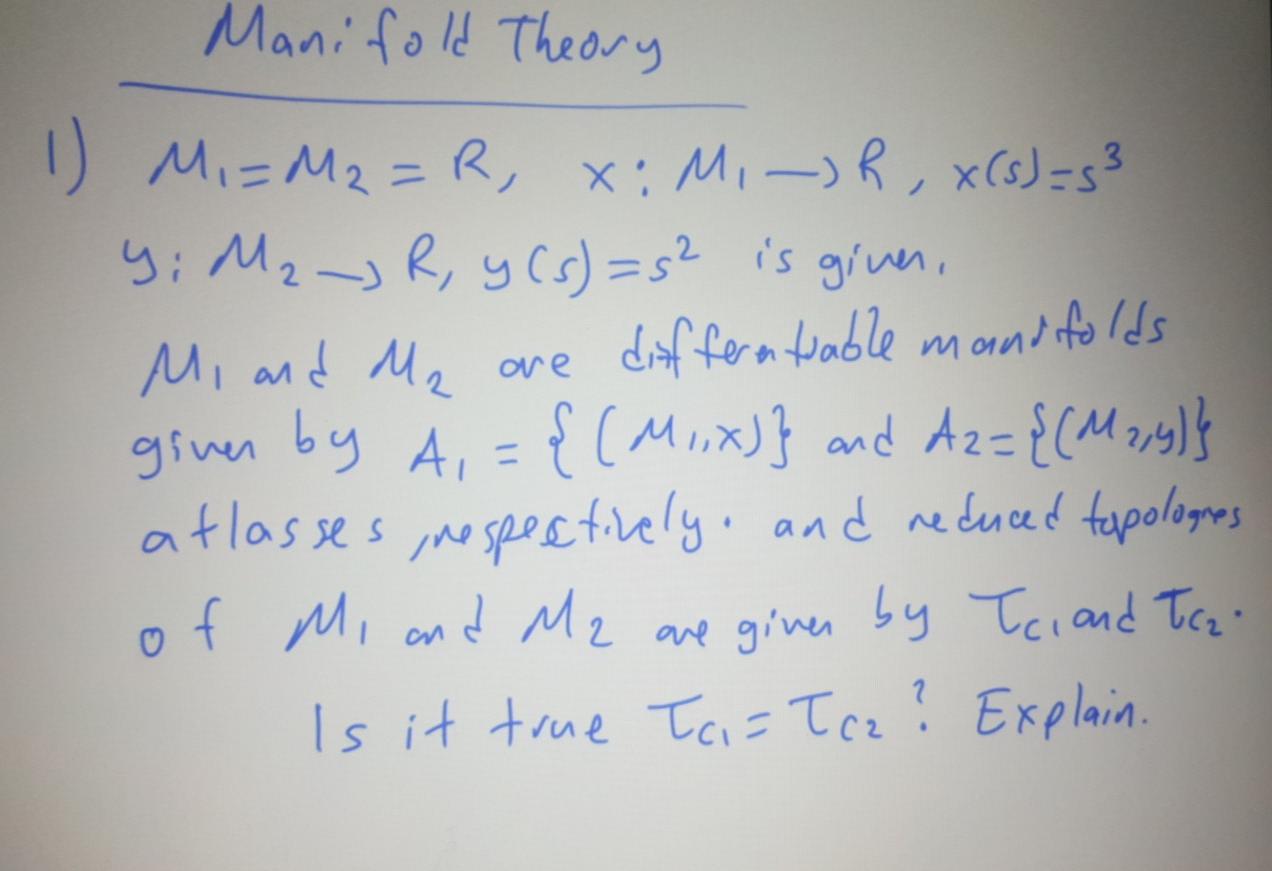 Manifold Theory
1) M₁=M₂ = R, x: M₁→R, x(s)=s³
y: M₂→R, y(s)=s² is given.
M₁ and M₂ are differentiable manifolds
given by A₁ = {(M₁,x)} and A₂={(M₂,y)}
atlasses, respectively. and reduced topologies
of M₁ and M₂ are given by τc₁ and τc₂.
Is it true τc₁=τc₂? Explain.